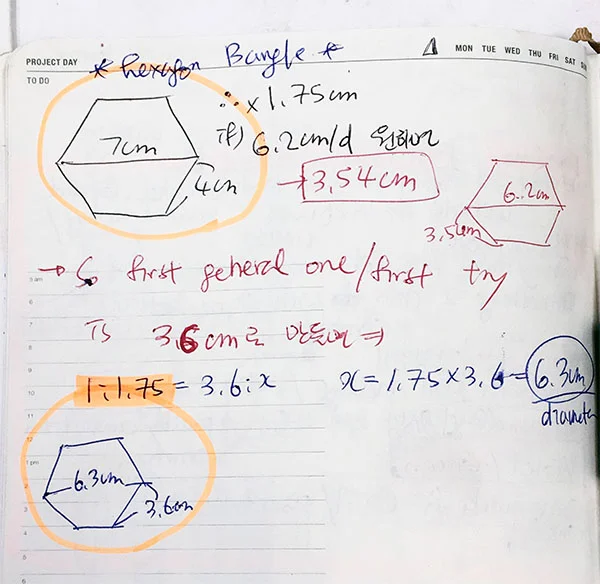 PROJECT DAY
* hexagon Bangle *
MON TUE WED THU FRI SAT
TO DO
7cm
4cm
∴ x 1.75cm
6.2cm/d 원하면
→ 3.54cm
6.2cm
3.54cm
→ So first general one/first try
is 3.6cm로 만들면 ⇒
1:1.75 = 3.6:x
x = 1.75 × 3.6 = 6.3cm
diameter
6.3cm
3.6cm
5 am
6
7
8
9
10
11
12
1 pm
2
3
4
5
6